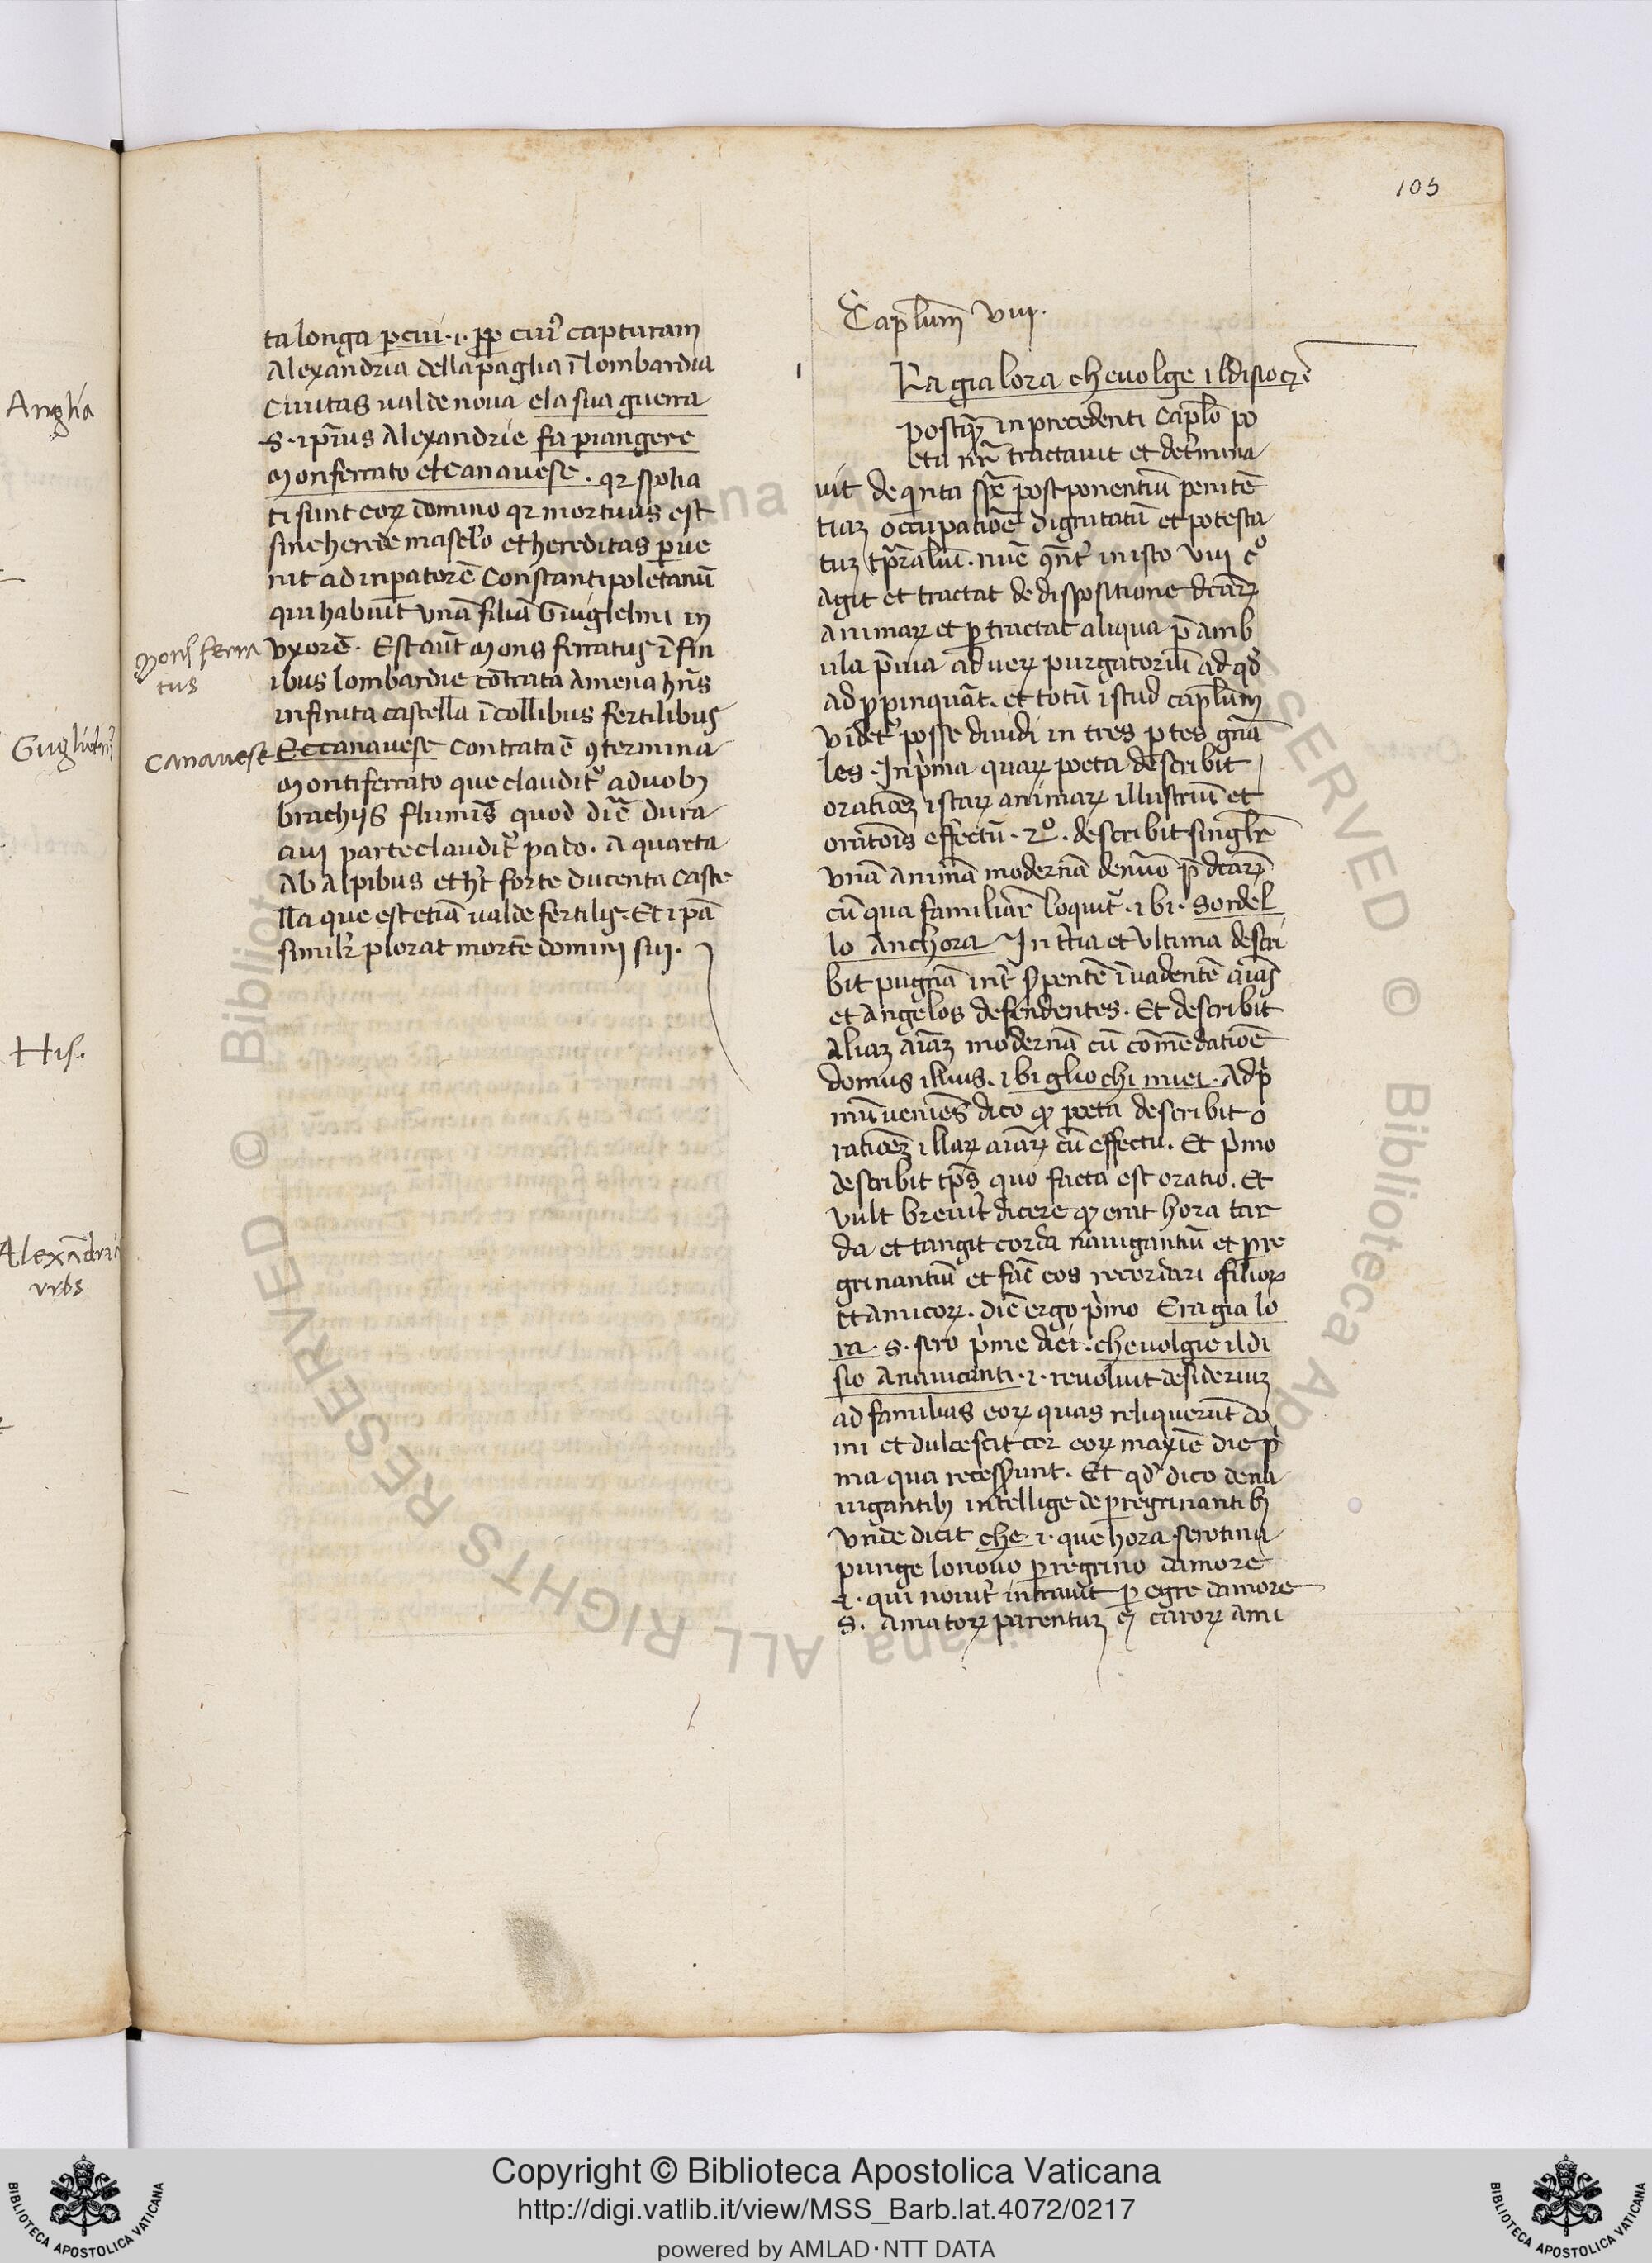 105
Anglia
Guglielmꝰ
His.
Alexādria
vrbs
Mons ferra
tus
Canauese
ta longa p cui .i. ꝓp cuiꝰ capturam
Alexandria della paglia ī lombardia
Ciuitas ualde noua e la sua guerra
.S. ip̄ius Alexandrie fa piangere
Monferrato et Canauese . qꝛ spolia
ti sunt eoꝝ domino qꝛ mortuus est
sine herede masclo et hereditas perue
nit ad inpatorē Constantipoletanū
qui habuit vnā filiā Giuglelmi in
vxorē . Est aūt Mons ferratus ī fin
ibus lombardie cōtrata Amena hn̄s
infinita castella ī collibus fertilibus
Et canauese Contrata ē ꝯtermina
Montiferrato que clauditꝰ a duobꝫ
brachijs fluminis quod dr̄e dura
a iiij parte clauditꝰ pado . A quarta
Ab Alpibus et hēt forte ducenta Caste
lla que est etiā ualde fertilis . Et ipā
similr̄ plorat mortē domini sui .
Cap̄lum viij .
Ra gia lora che uolge il disio
postqꝫ in precedenti Cap̄lo po
eta nr̄ tractauit et det̄mina
uit de qrta spē postponentiū penitē
tiaꝫ occupatiōe dignitatū et potesta
tuꝫ tp̄raliū . nūc in isto viij cº
Agit et tractat de dispositione dcāꝝ
Animaꝝ et p tractat aliqua p̄amb
ula p̄uia ad ueꝝ purgatoriū ad qd̄
ad ꝓpinquāt . et totū istud cap̄lum
videtꝰ posse diuidi in tres ptes gnā
les . In prima quaꝝ poeta describit
oratiōeꝫ istaꝝ animaꝝ illustriū et
orātois effectū . 2º . describit singlr̄e
vnā animā modernā denuo p̄ dcāꝝ
cū qua familiar̄ loquitꝰ . ibi . Sordel
lo Anchora In tr̄ia et vltima descri
bit pugnā int̄ serpentē īuadentē aīas
et Angelos defendentes . Et describit
Aliaꝫ aīaꝫ modernā cū cōmēdatiōe
domus illius . ibi gliochi miei . Ad pri
mū ueniēs dico ꝙ poeta describit o
ratiōeꝫ illaꝝ aīaꝝ cū effectu . Et primo
describit tp̄s quo facta est oratio . Et
vult breuit̄ dicere ꝙ erat hora tar
da et tangit corda nauigantiū et pre
grinantiū et facit eos recordari filioꝝ
et Amicoꝝ . dic ergo primo Era gia lo
ra . S . sero prime diei . che uolgie il di
sio A nauicanti .i. reuoluit desideriuꝫ
ad familias eoꝝ quas reliquerūt do
mi et dulcescit cor eoꝝ maxīe die pri
ma qua recesserunt . Et qd̄ dico de na
uigantibꝫ intellige de pregrinantibꝫ
vnde dicit che .i. que hora serotina
punge lo nouo pregrino damore
.i. qui nouit̄ intrauit p egre damore
S . Amatoꝝ parentuꝫ caroꝝ ami
Copyright © Biblioteca Apostolica Vaticana
http://digi.vatlib.it/view/MSS_Barb.lat.4072/0217
powered by AMLAD·NTT DATA
BIBLIOTECA APOSTOLICA VATICANA
BIBLIOTECA APOSTOLICA VATICANA